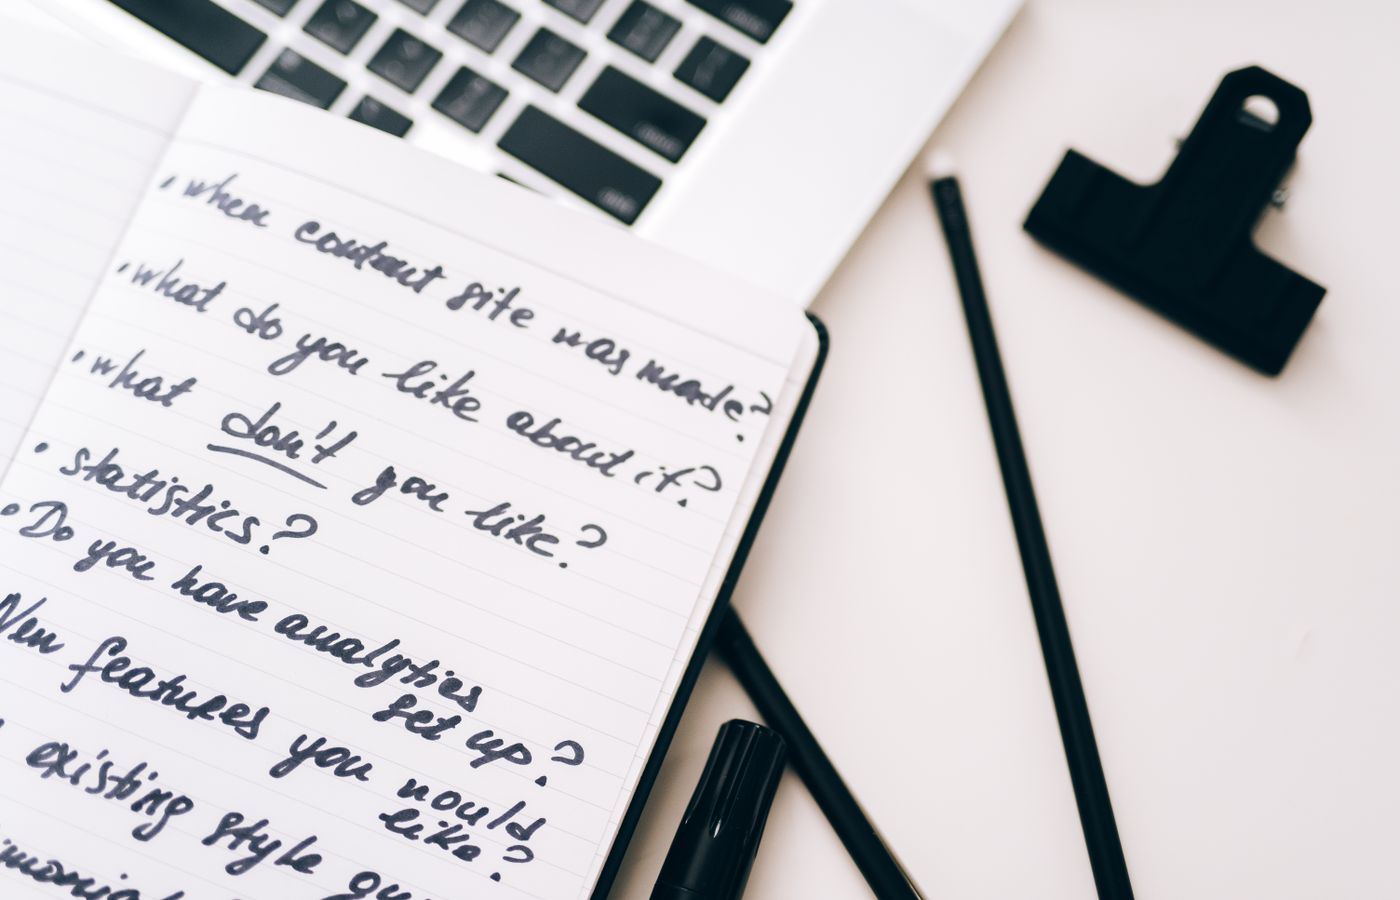 • when content site was made?
• what do you like about it?
• what don't you like?
• statistics?
• Do you have analytics
set up?
New features you would
like?
existing style